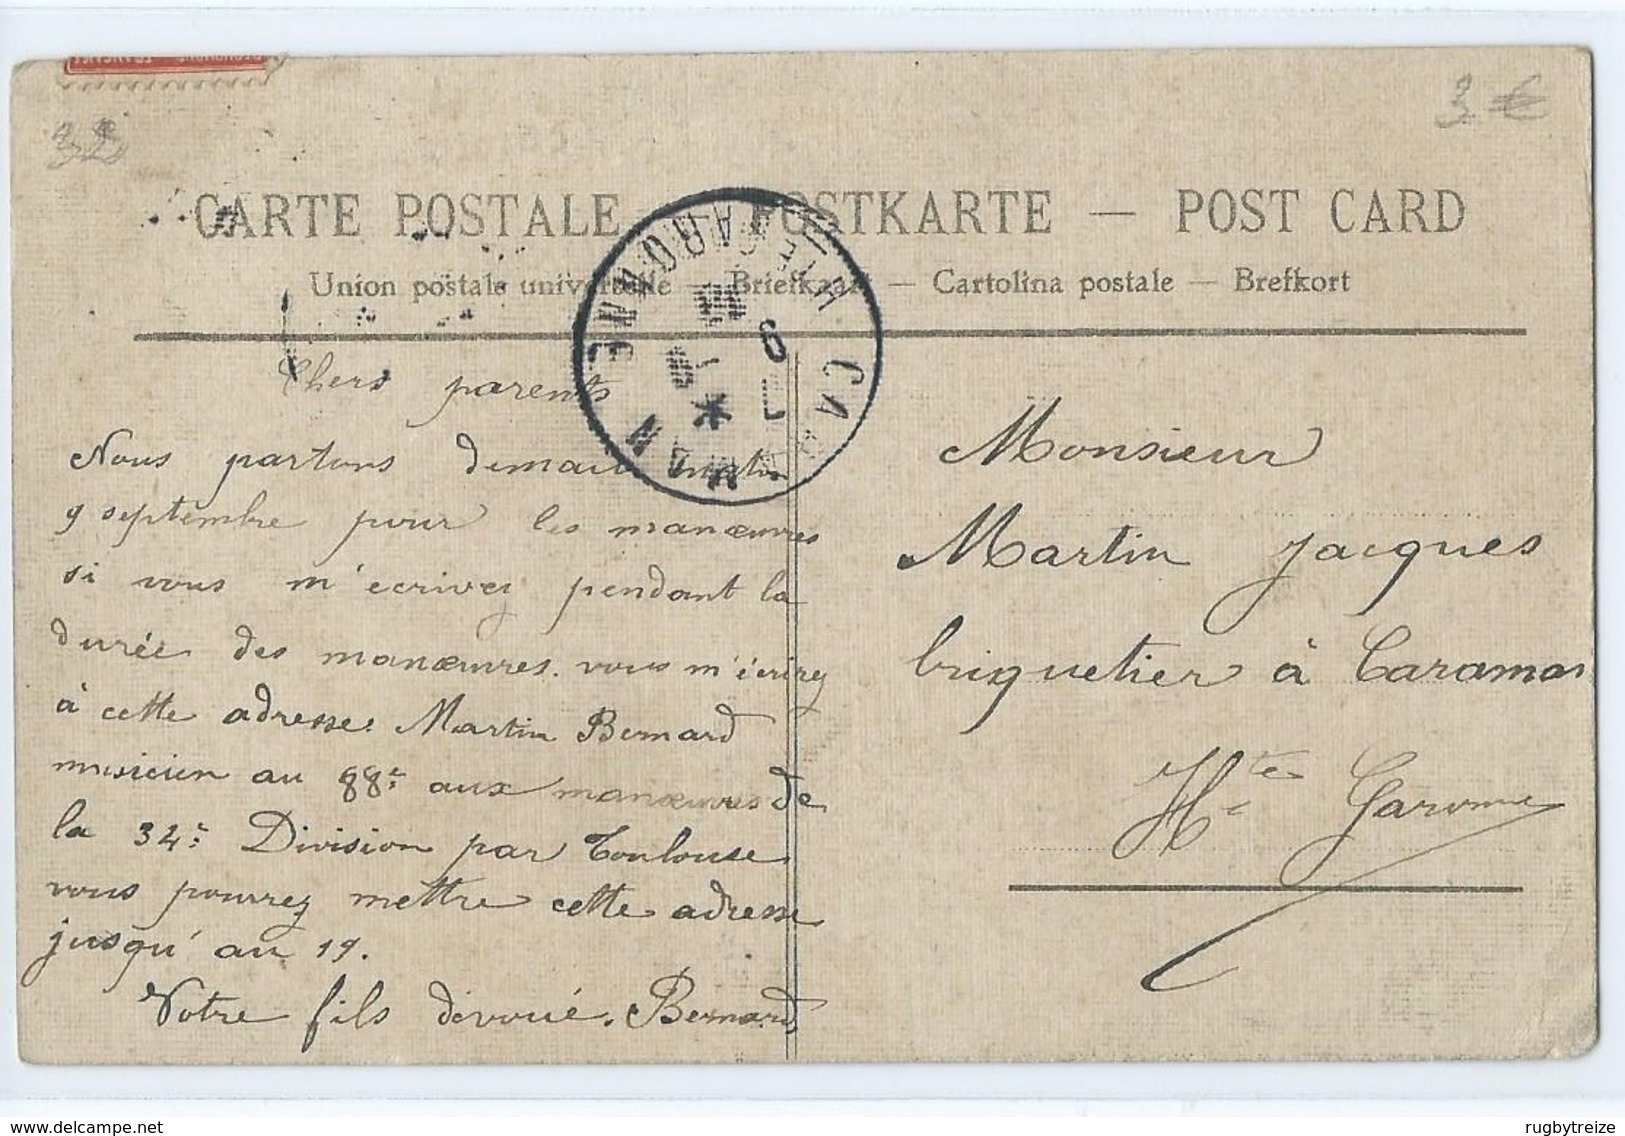 32
3 €
CARTE POSTALE — POSTKARTE — POST CARD
Union postale universelle — Briefkaart — Cartolina postale — Brefkort
CARAMAN
HTE GARONNE
Chers parents
Nous partons demain matin
9 septembre pour les manœuvres
si vous m'ecrivez pendant la
durée des manœuvres. vous m'écrirez
à cette adresse: Martin Bernard
musicien au 88e aux manœuvres de
la 34e Division par Toulouse
vous pourrez mettre cette adresse
jusqu'au 19.
Votre fils dévoué. Bernard
Monsieur
Martin Jacques
briquetier à Caraman
Hte Garonne
www.delcampe.net
rugbytreize